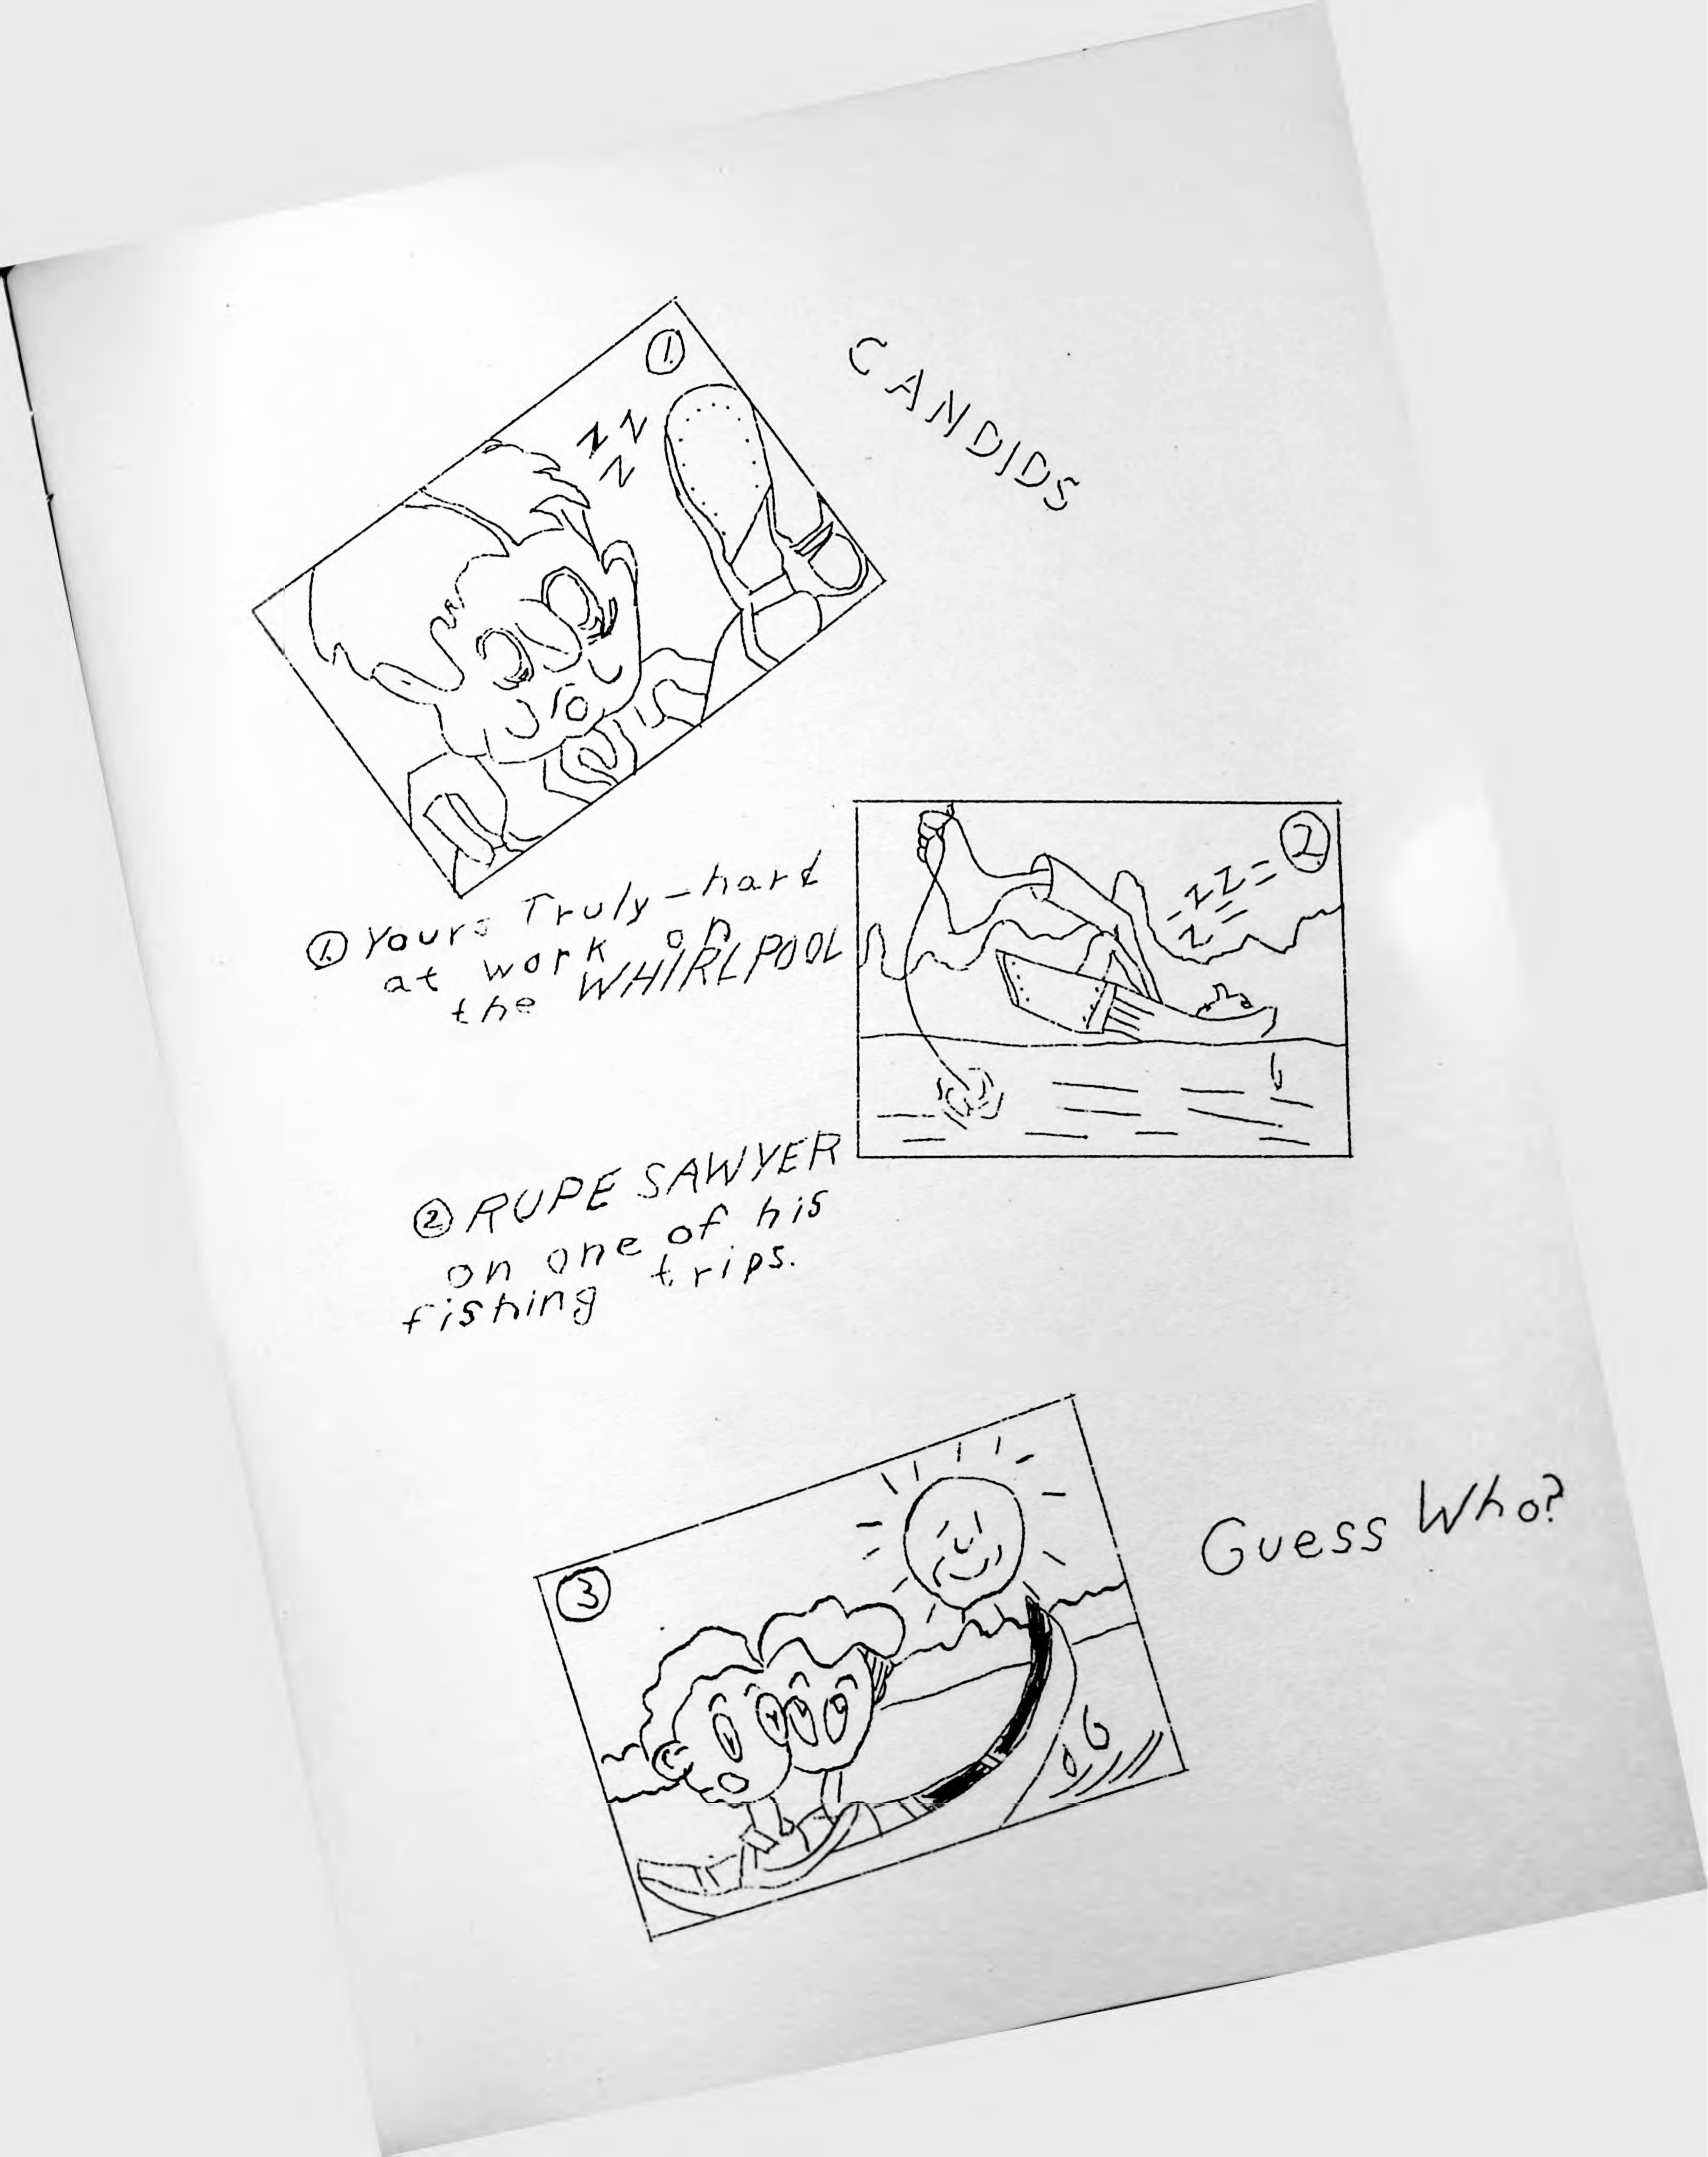 CANDIDS
1.
Z Z
Z
① Yours Truly - hard
at work on
the WHIRLPOOL
2.
ZZ
Z
② RUPE SAWYER
on one of his
fishing trips.
3
Guess Who?